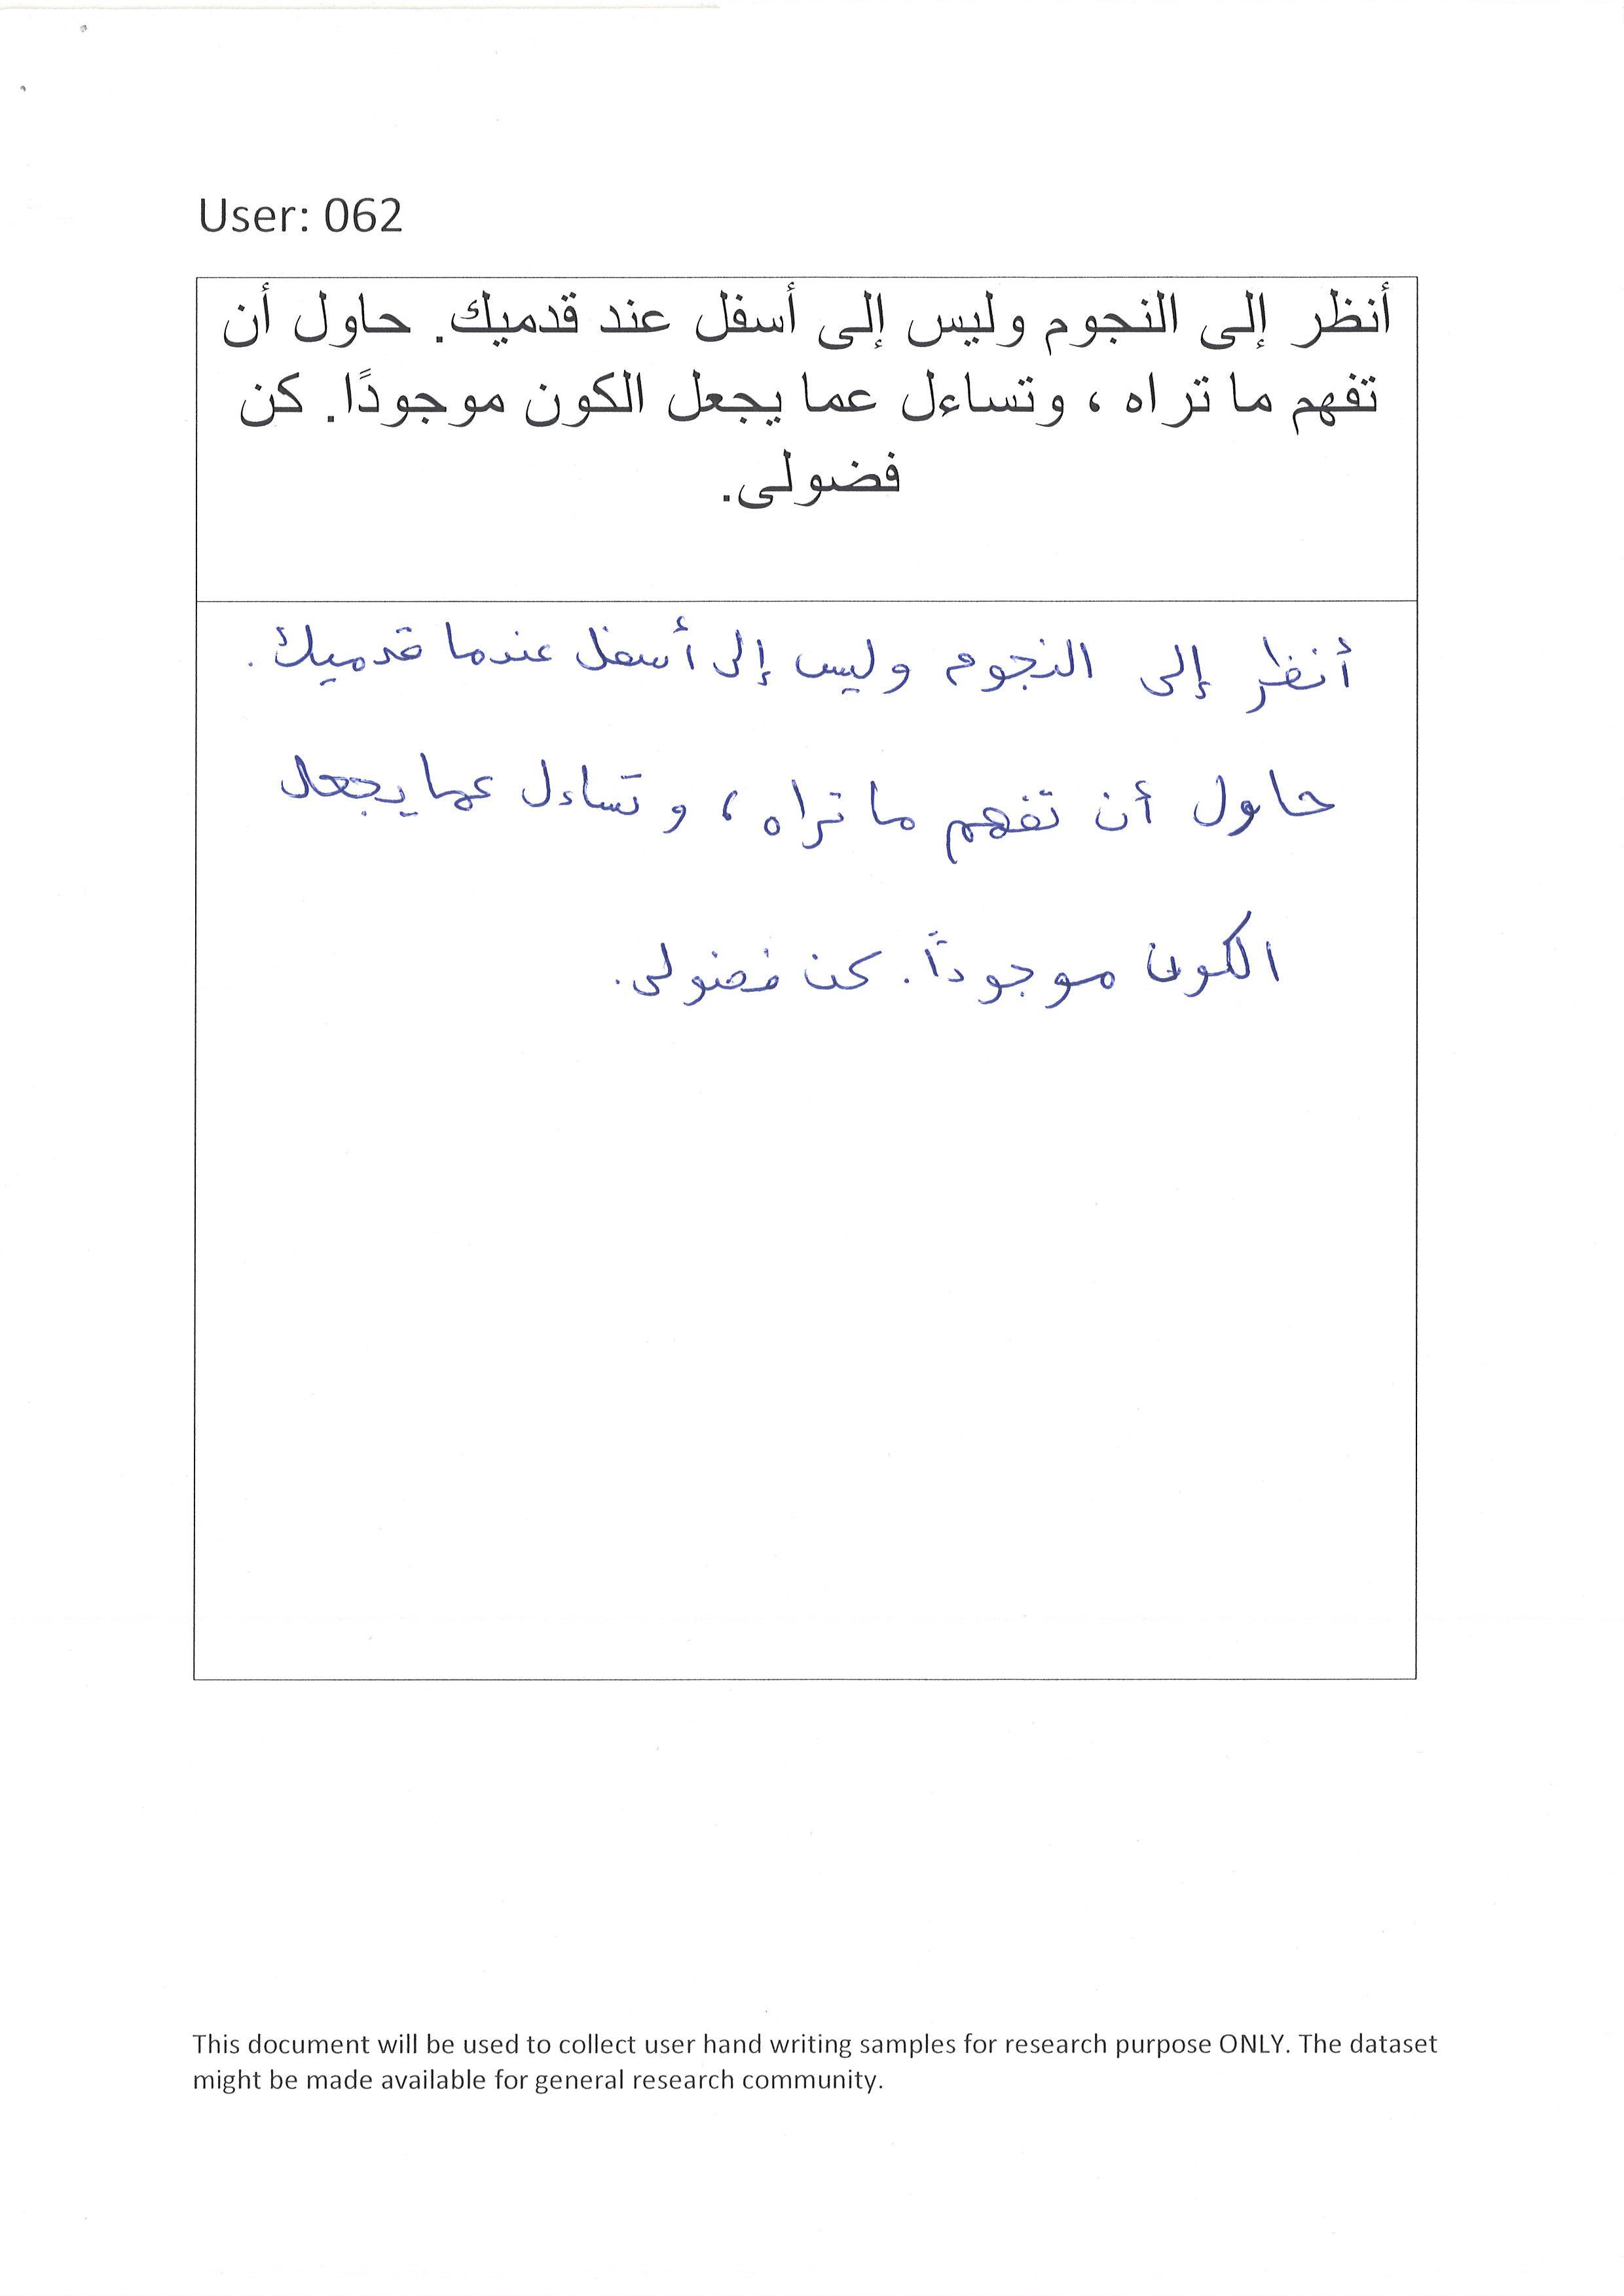 User: 062
أنظر إلى النجوم وليس إلى أسفل عند قدميك. حاول أن
تفهم ما تراه ، وتساءل عما يجعل الكون موجودًا. كن
فضولى.
أنظر إلى النجوم وليس إلى أسفل عندما قدميك.
حاول أن تفهم ما تراه ، و تساءل عما يجعل
الكون موجوداً. كن فضولى.
This document will be used to collect user hand writing samples for research purpose ONLY. The dataset
might be made available for general research community.